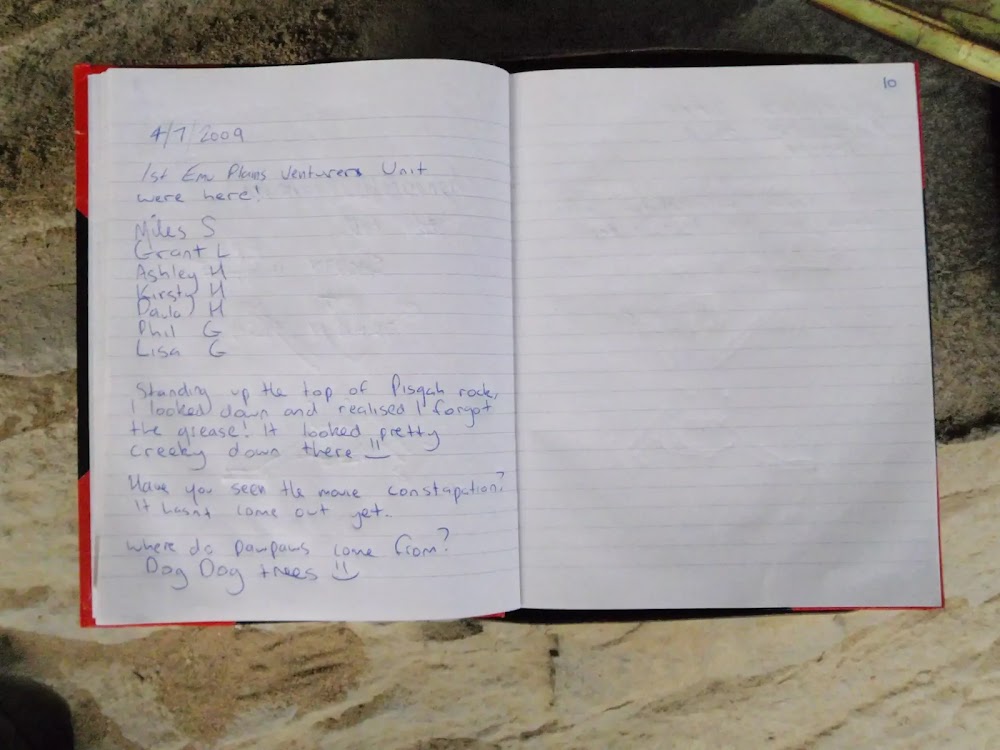 4/7/2009
1st Emu Plains Venturers Unit
were here!
Miles S
Grant L
Ashley H
Kirsty H
H
Phil G
Lisa G
Standing up the top of Pisgah rock,
I looked down and realised I forgot
the grease! It looked pretty
creeky down there
Have you seen the movie constapation?
It hasnt come out yet..
where do pawpaws come from?
Dog Dog trees
10